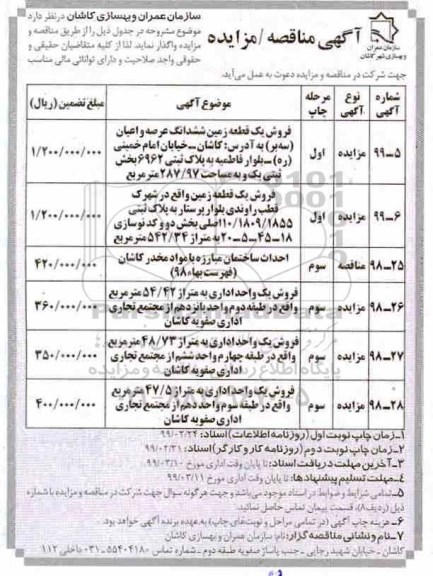 سازمان عمران و بهسازی شهر کاشان
آگهی مناقصه / مزایده
سازمان عمران و بهسازی کاشان در نظر دارد
موضوع مشروحه در جدول ذیل را از طریق مناقصه و
مزایده واگذار نماید. لذا از کلیه متقاضیان حقیقی و
حقوقی واجد صلاحیت و دارای توانائی مالی مناسب
جهت شرکت در مناقصه و مزایده دعوت به عمل می‌آید.
شماره آگهی | نوع آگهی | مرحله چاپ | موضوع آگهی | مبلغ تضمین (ریال)
۹۹-۵ | مزایده | اول | فروش یک قطعه زمین ششدانگ عرصه و اعیان
(سه‌بر) به آدرس: کاشان - خیابان امام خمینی
(ره) - بلوار فاطمیه به پلاک ثبتی ۶۹۶۲ بخش
ثبتی یک و به مساحت ۲۸۷/۹۷ مترمربع | ۱/۲۰۰/۰۰۰/۰۰۰
۹۹-۶ | مزایده | اول | فروش یک قطعه زمین واقع در شهرک
قطب راوندی بلوار پرستار به پلاک ثبتی
۱۰/۱۸۰۹/۱۸۵۵ اصلی بخش دو و کد نوسازی
۱۸-۴۵-۵-۲۰ به متراژ ۵۴۲/۳۴ مترمربع | ۱/۲۰۰/۰۰۰/۰۰۰
۹۸-۲۵ | مناقصه | سوم | احداث ساختمان مبارزه با مواد مخدر کاشان
(فهرست بهاء ۹۸) | ۴۲۰/۰۰۰/۰۰۰
۹۸-۲۶ | مزایده | سوم | فروش یک واحد اداری به متراژ ۵۴/۴۲ مترمربع
واقع در طبقه دوم واحد پانزدهم از مجتمع تجاری
اداری صفویه کاشان | ۳۶۰/۰۰۰/۰۰۰
۹۸-۲۷ | مزایده | سوم | فروش یک واحد اداری به متراژ ۴۸/۷۳ مترمربع
واقع در طبقه چهارم واحد ششم از مجتمع تجاری
اداری صفویه کاشان | ۳۵۰/۰۰۰/۰۰۰
۹۸-۲۸ | مزایده | سوم | فروش یک واحد اداری به متراژ ۴۷/۵ مترمربع
واقع در طبقه سوم واحد دهم از مجتمع تجاری
اداری صفویه کاشان | ۴۰۰/۰۰۰/۰۰۰
۱- زمان چاپ نوبت اول (روزنامه اطلاعات) اسناد: ۹۹/۰۲/۲۴
۲- زمان چاپ نوبت دوم (روزنامه کار و کارگر) اسناد: ۹۹/۰۲/۳۱
۳- آخرین مهلت دریافت اسناد: تا پایان وقت اداری مورخ ۹۹/۰۳/۱۰
۴- مهلت تسلیم پیشنهادها: تا پایان وقت اداری مورخ ۹۹/۰۳/۱۱
۵- تمامی شرایط و ضوابط در اسناد موجود می‌باشد و جهت هرگونه سوال جهت شرکت در مناقصه و مزایده با شماره
ذیل (ردیف ۸)، قسمت پیمان تماس حاصل نمائید.
۶- هزینه چاپ آگهی (در تمامی مراحل و نوبت‌های چاپ) به عهده برنده آگهی خواهد بود.
۷- نام و نشانی مناقصه گزار: نام: سازمان عمران و بهسازی کاشان
کاشان - خیابان شهید رجایی - جنب پاساژ صفویه طبقه دوم - شماره تماس ۵۵۴۰۴۱۸۰-۰۳۱ داخلی ۱۱۲